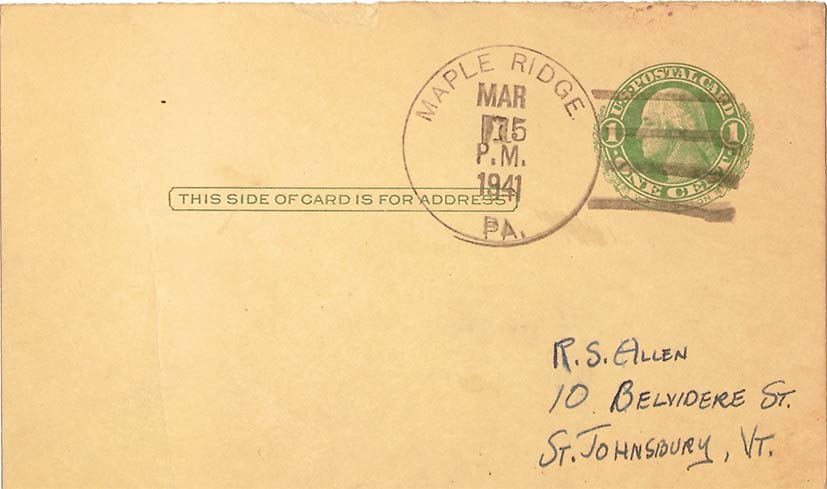 MAPLE RIDGE
MAR
15
P.M.
1941
PA.
U.S. POSTAL CARD
1 1
ONE CENT
THIS SIDE OF CARD IS FOR ADDRESS
R.S. ALLEN
10 BELVIDERE ST.
ST. JOHNSBURY, VT.